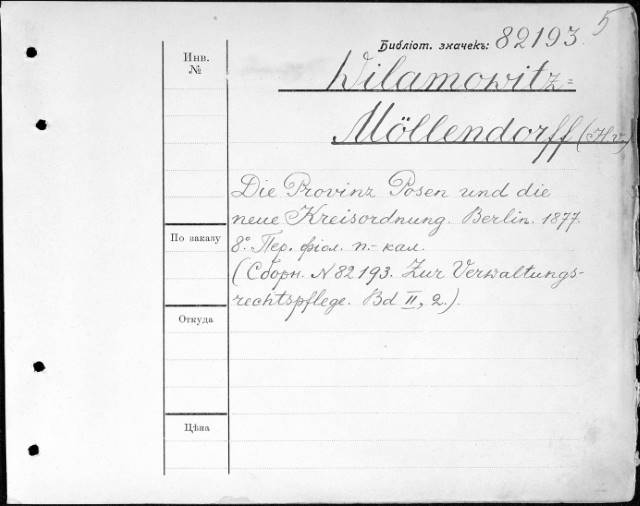 5
Библіот. значекъ: 82193.
Инв.
№
Wilamowitz=
Möllendorff (H. v.)
Die Provinz Posen und die
neue Kreisordnung. Berlin. 1877.
8°. Пер. фіол. п.-кал.
(Сборн. N 82193. Zur Verwaltungs-
rechtspflege. Bd II, 2.).
По заказу
Откуда
Цѣна